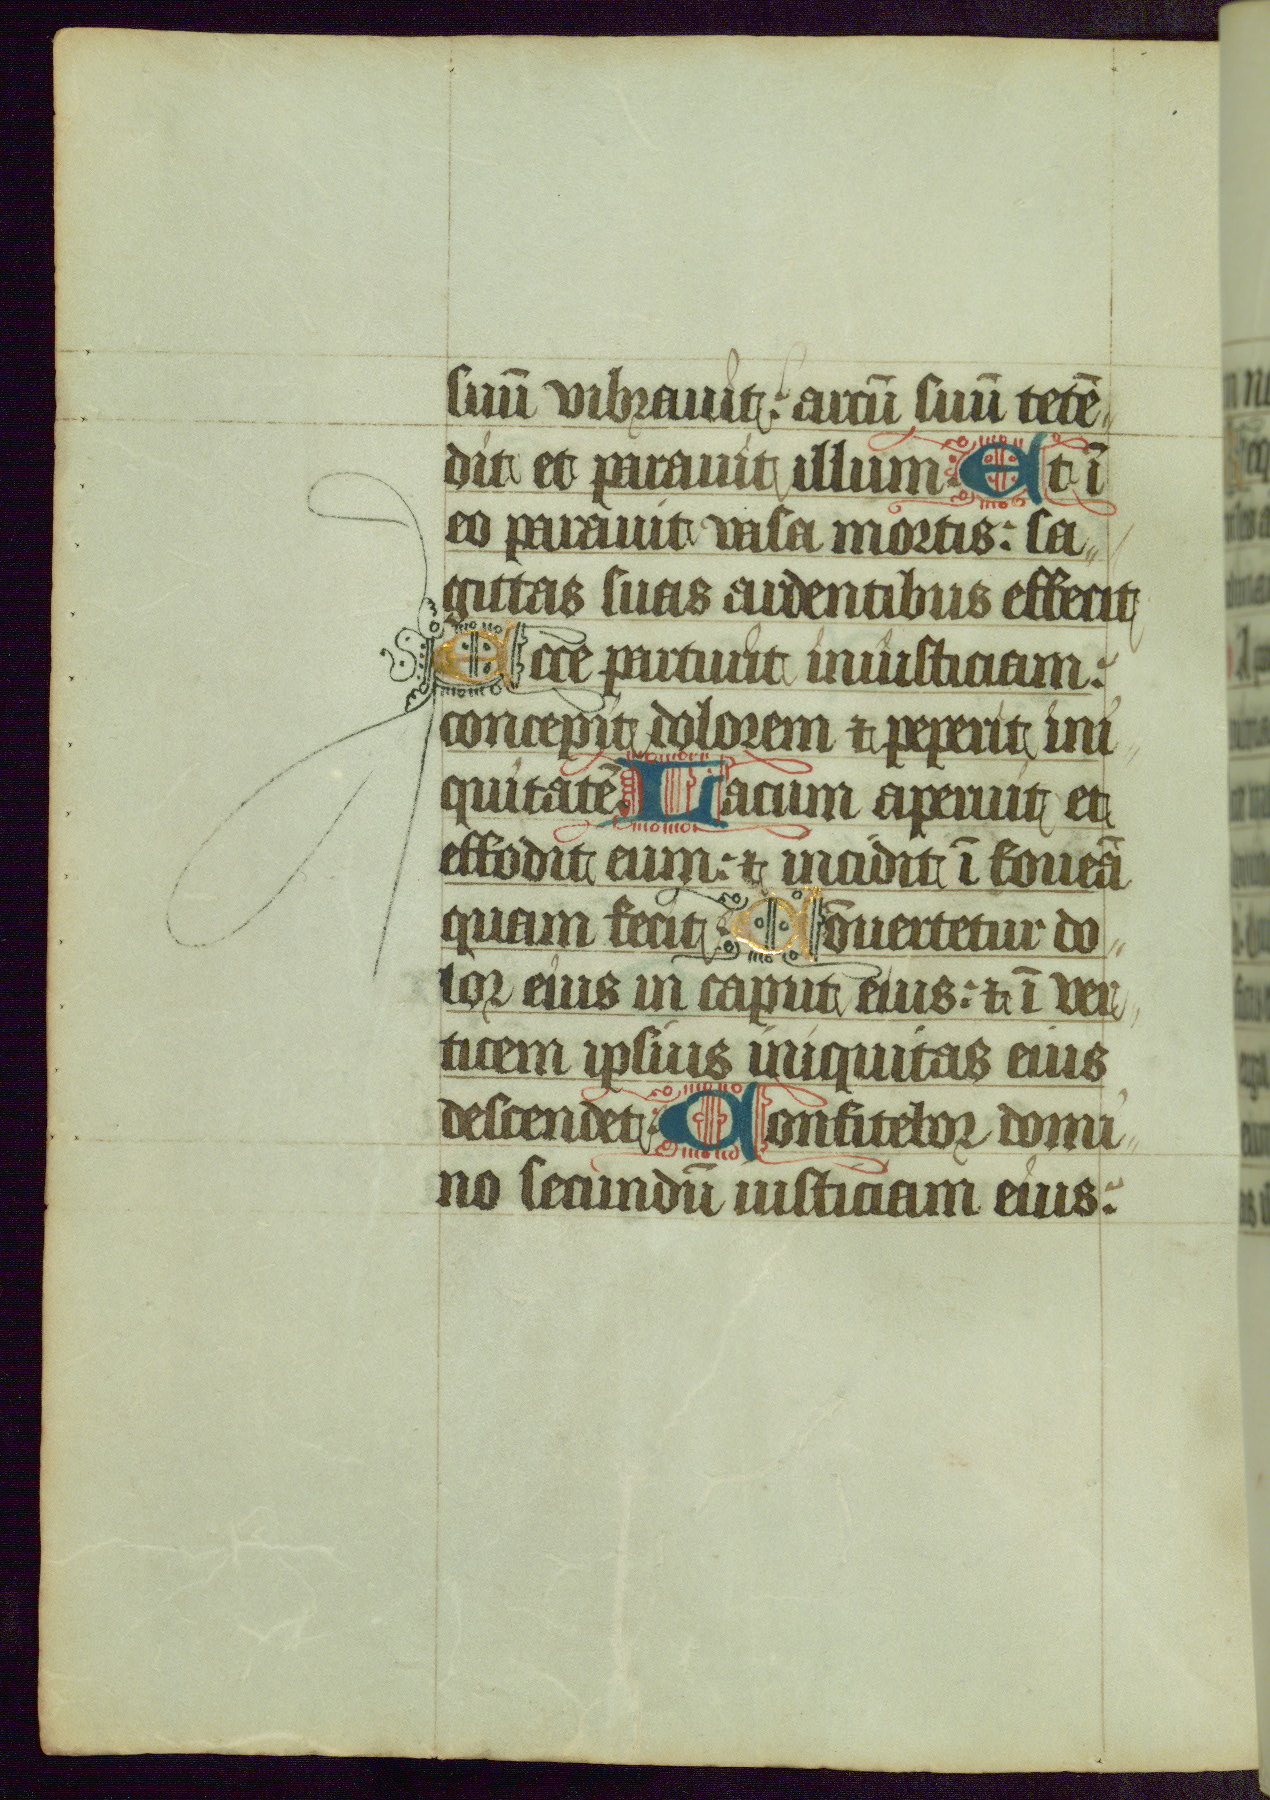 suū vibrauit: arcū suū tetē
dit et parauit illum. Et ī
eo parauit vasa mortis: sa
gittas suas ardentibus effecit
Ecce parturit iniusticiam:
concepit dolorem ⁊ peperit ini
quitatē. Lacum aperuit et
effodit eum: ⁊ incidit ī foueā
quam fecit. Cōuertetur do
lor eius in caput eius: ⁊ ī ver
ticem ipsius iniquitas eius
descendet. Confitebor domi
no secundū iusticiam eius: